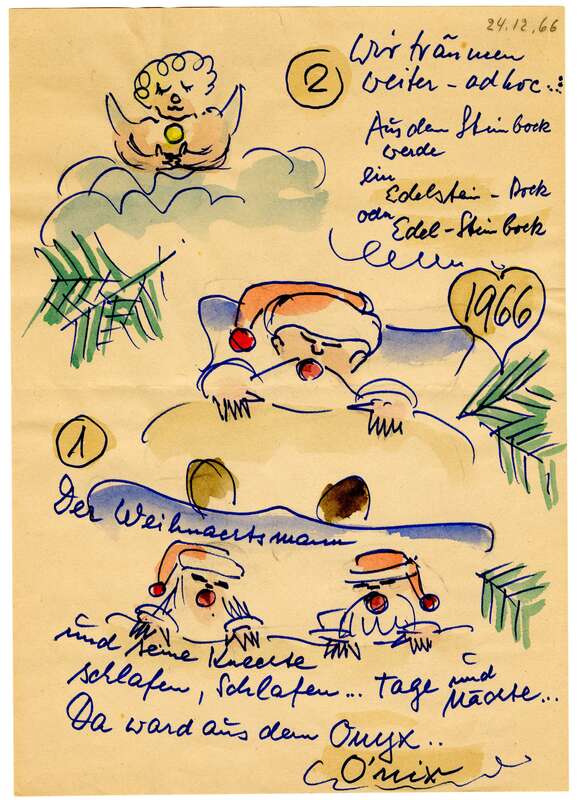 24.12.66
②
Wir träumen
weiter - ad hoc...
Aus dem Steinbock
werde
ein
Edelstein - Bock
oder
Edel - Steinbock
1966
①
Der Weihnachtsmann
und seine Knechte
schlafen, schlafen... Tage und
Nächte...
Da ward aus dem Onyx..
O'nix